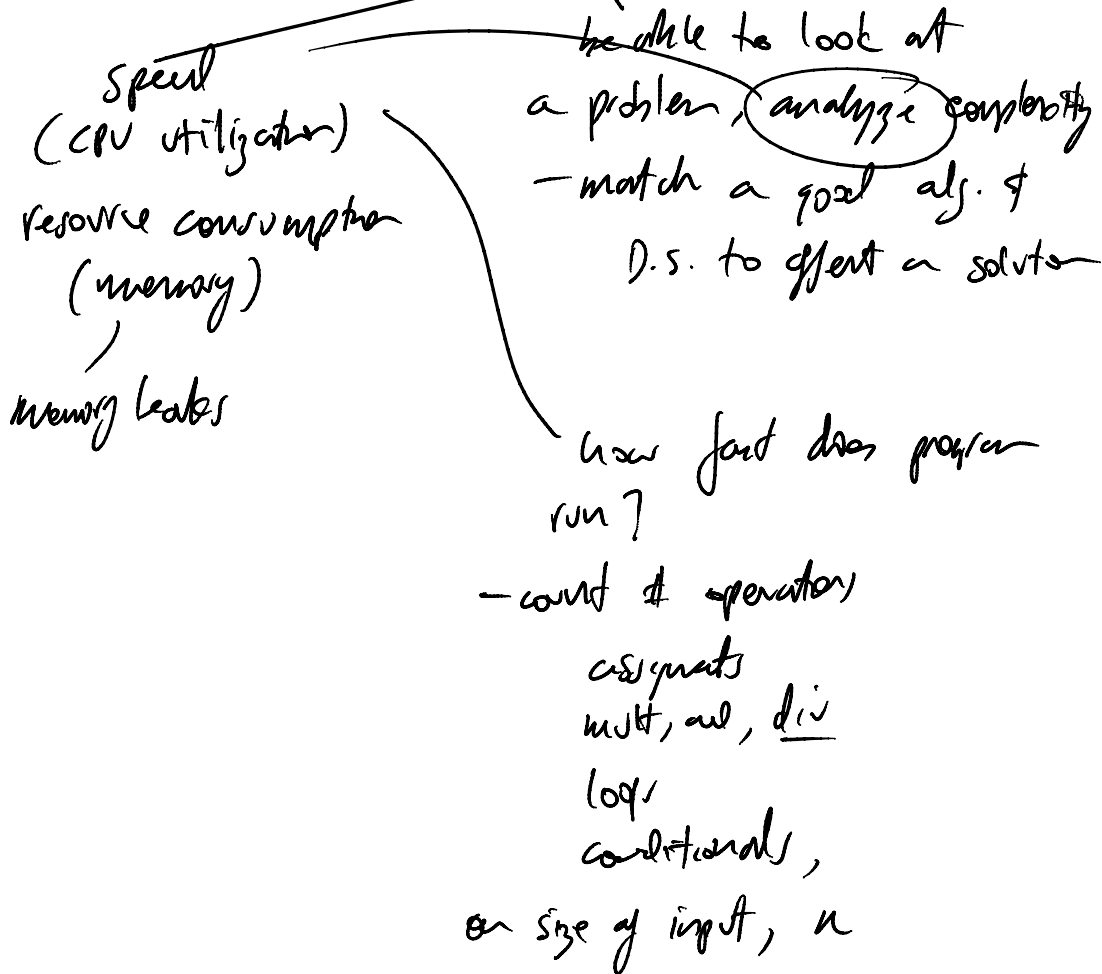 speed
(CPU utilization)
resource consumption
(memory)
memory leaks
be able to look at
a problem, analyze complexity
- match a good alg. &
D.S. to effect a solution
how fast does program
run?
- count # operations
assignments
mult, add, div
loops
conditionals,
on size of input, n